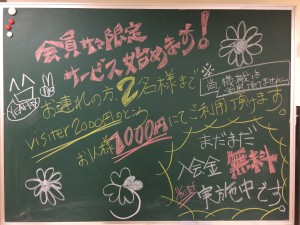 会員さま限定
サービス始めます!
お連れの方、2名様まで
※尚、機械は
利用頂けません。
visiter 2000円のところ
お1人様1000円にてご利用頂けます。
まだまだ
入会金無料
実施中です